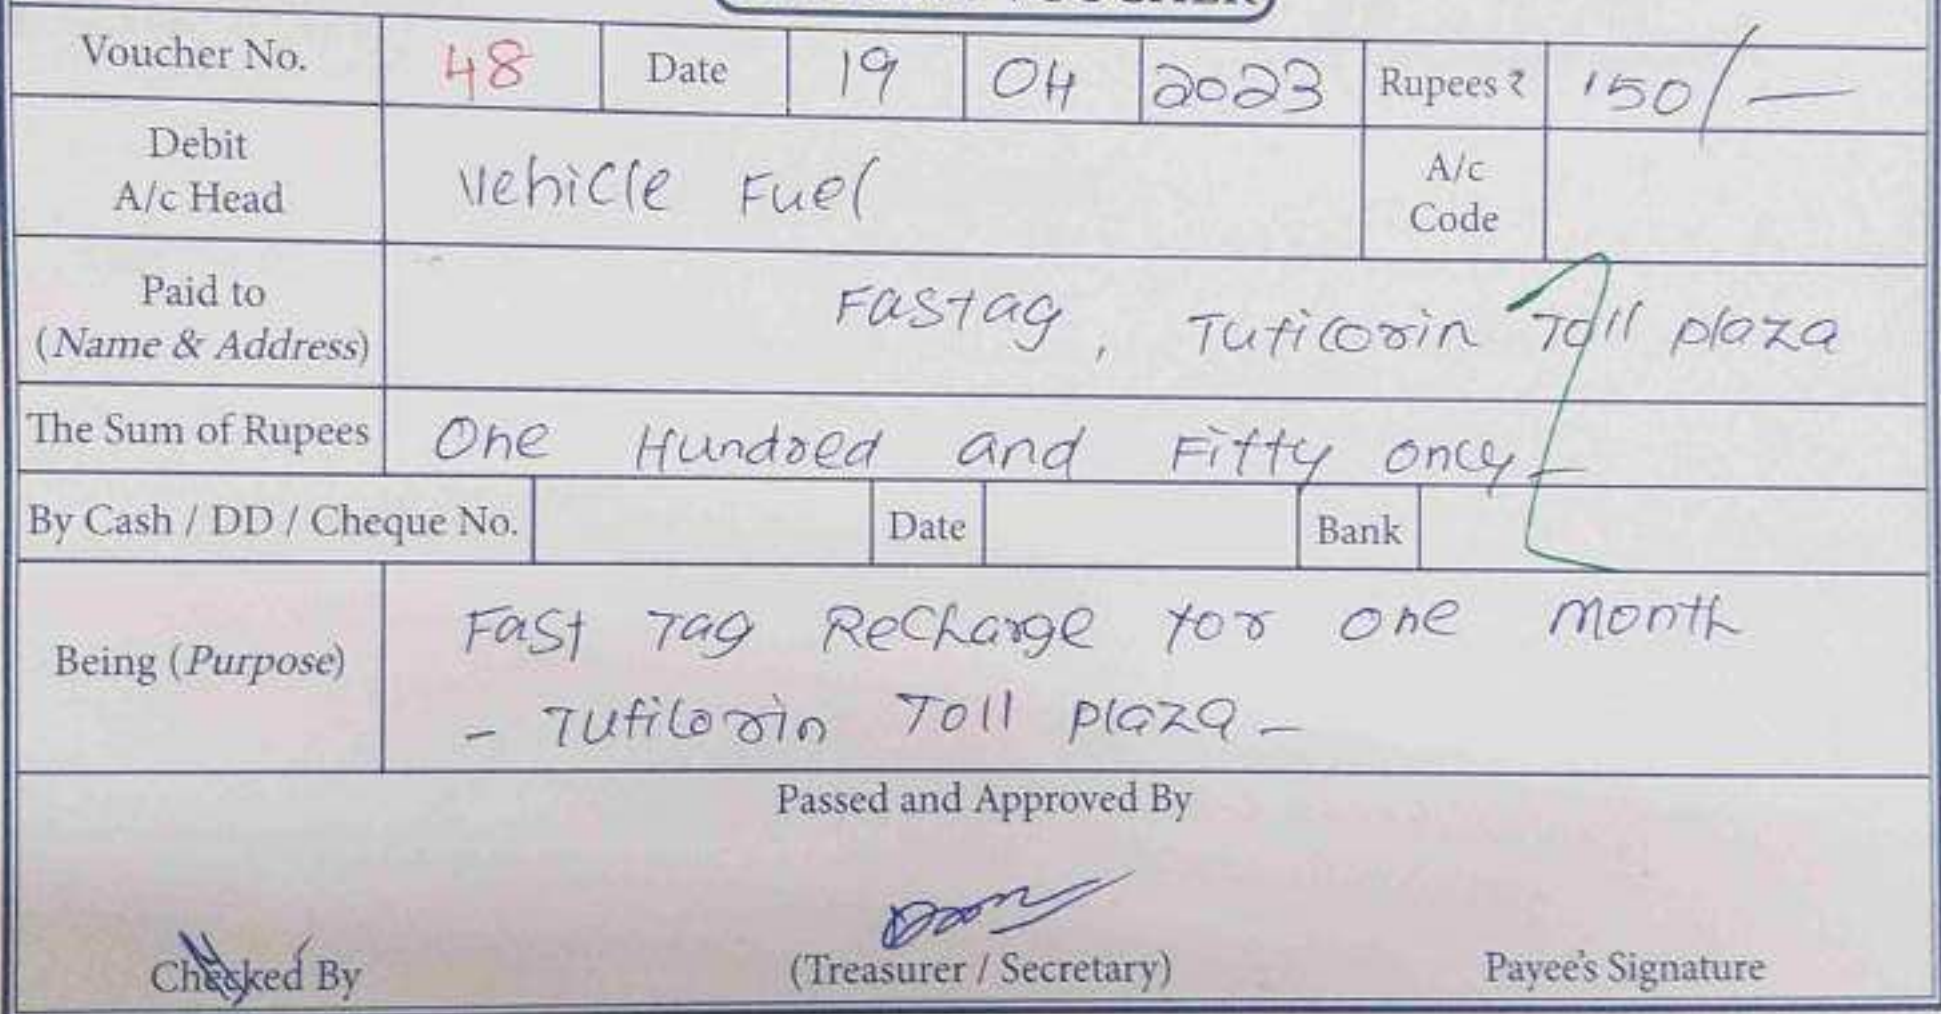 VOUCHER
Voucher No. 48 Date 19 04 2023 Rupees ₹ 150/-
Debit A/c Head Vehicle Fuel A/c Code
Paid to (Name & Address) Fastag, Tuticorin Toll plaza
The Sum of Rupees One Hundred and Fifty only -
By Cash / DD / Cheque No. Date Bank
Being (Purpose) Fast Tag Recharge for one month
- Tuticorin Toll plaza -
Passed and Approved By
Checked By (Treasurer / Secretary) Payee's Signature